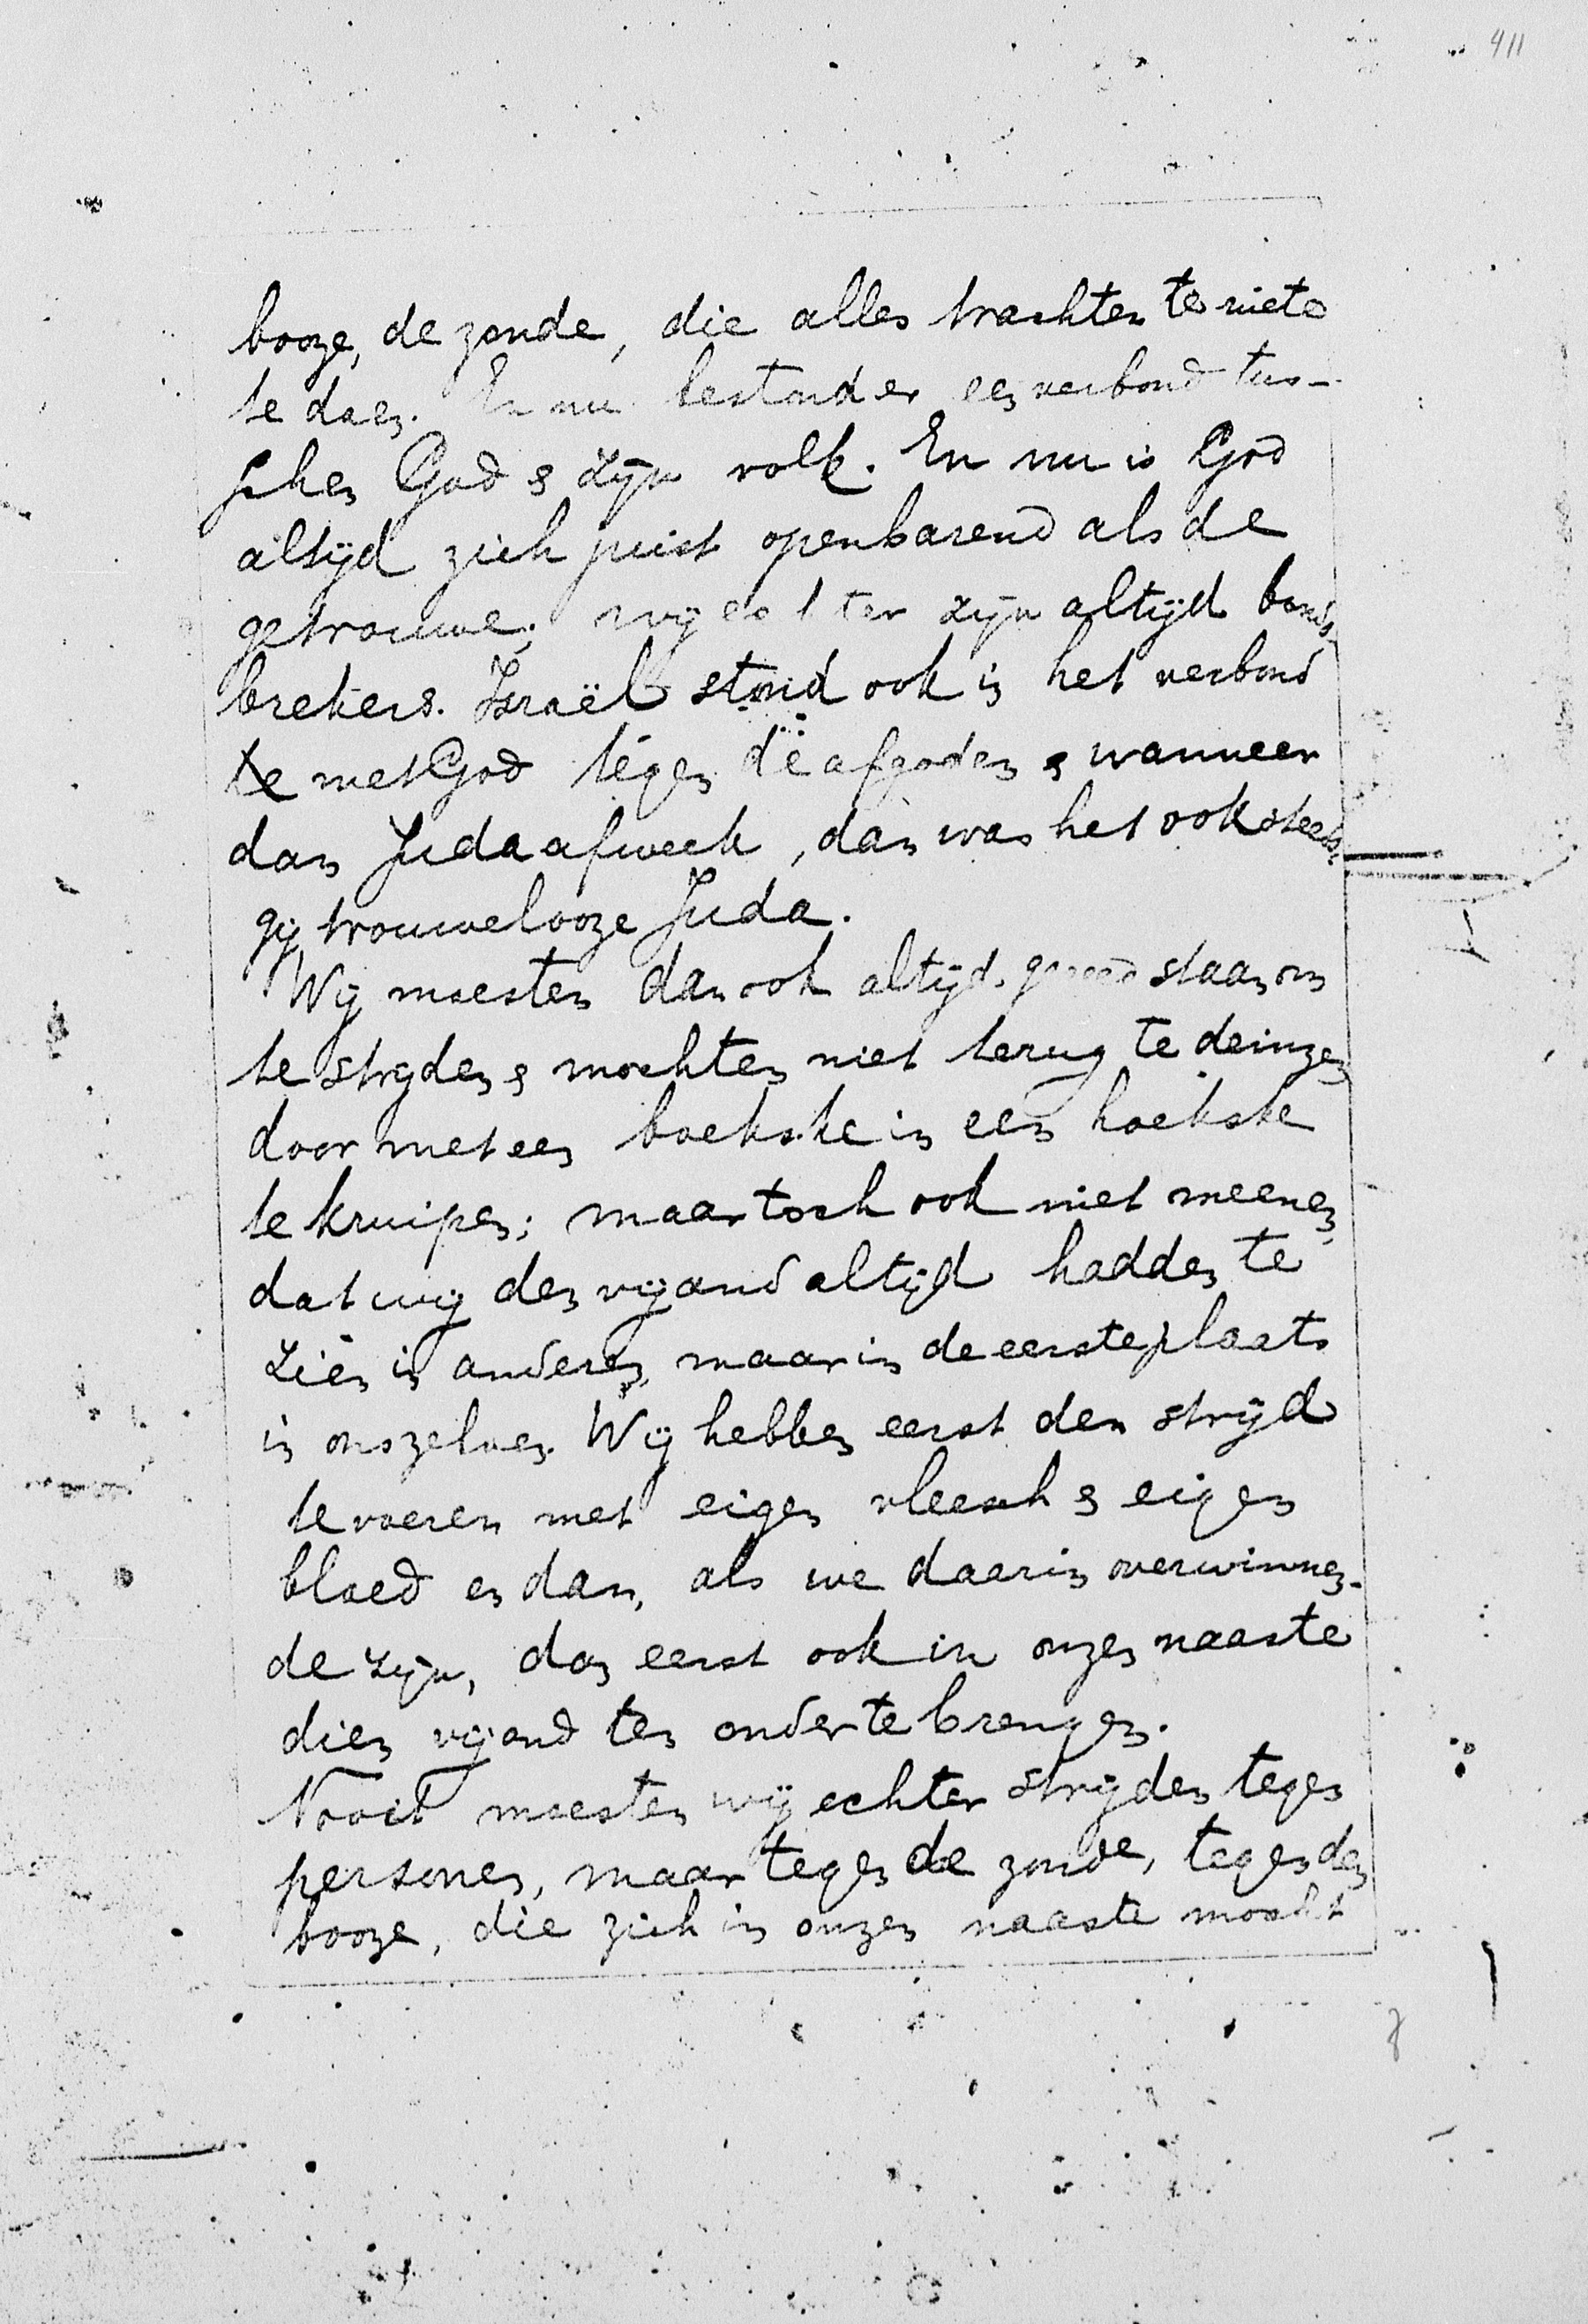 411
booze, de zonde, die alles trachten te niete
te doen. En nu bestond er een verbond tus-
schen God & zijn volk. En nu is God
altijd zich juist openbarend als de
getrouwe; wij echter zijn altijd bonds-
brekers. Israël stond ook in het verbond
met God tegen de afgoden & wanneer
dan Juda afweek, dan was het ook steeds,
gij trouwelooze Juda.
Wij moesten dan ook altijd gereed staan om
te strijden & mochten niet terug te deinzen
door met een boekske in een hoekske
te kruipen; maar toch ook niet meenen,
dat wij den vijand altijd hadden te
zien in anderen, maar in de eerste plaats
in onszelven. Wij hebben eerst den strijd
te voeren met eigen vleesch & eigen
bloed en dan, als we daarin overwinnen-
de zijn, dan eerst ook in onzen naaste
dien vijand ten onder te brengen.
Nooit moesten wij echter strijden tegen
personen, maar tegen de zonde, tegen den
booze, die zich in onzen naaste mocht